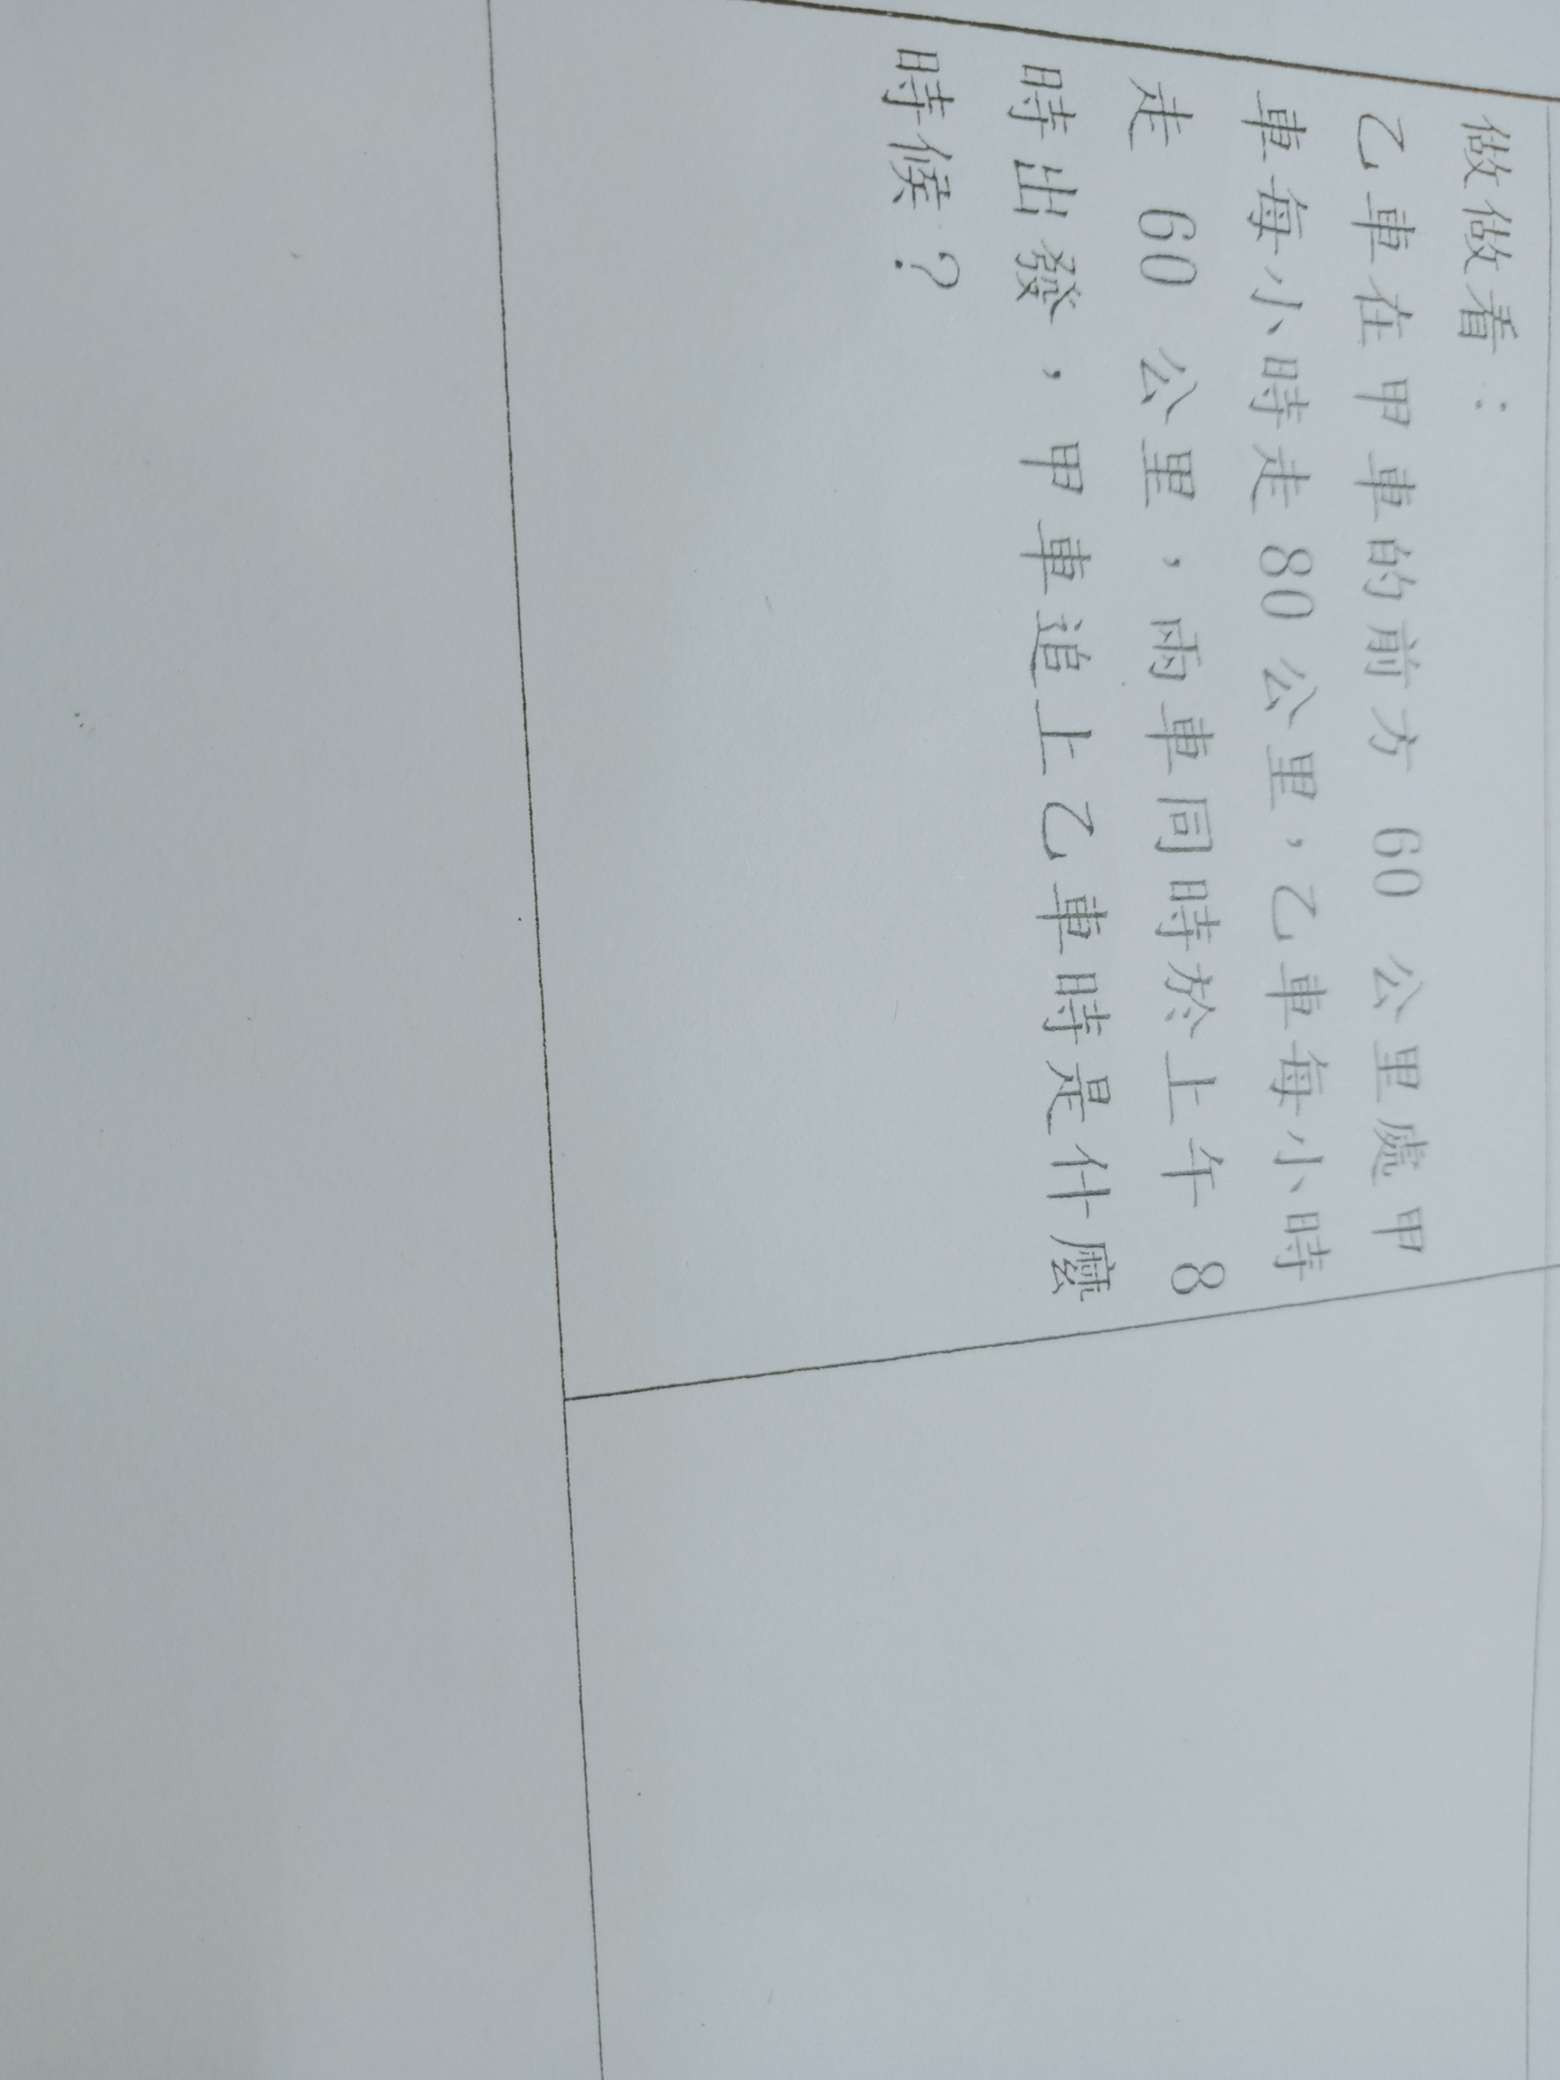 做做看：
乙車在甲車的前方 60 公里處甲
車每小時走 80 公里，乙車每小時
走 60 公里，雨車同時於上午 8
時出發，甲車追上乙車時是什麼
時候？